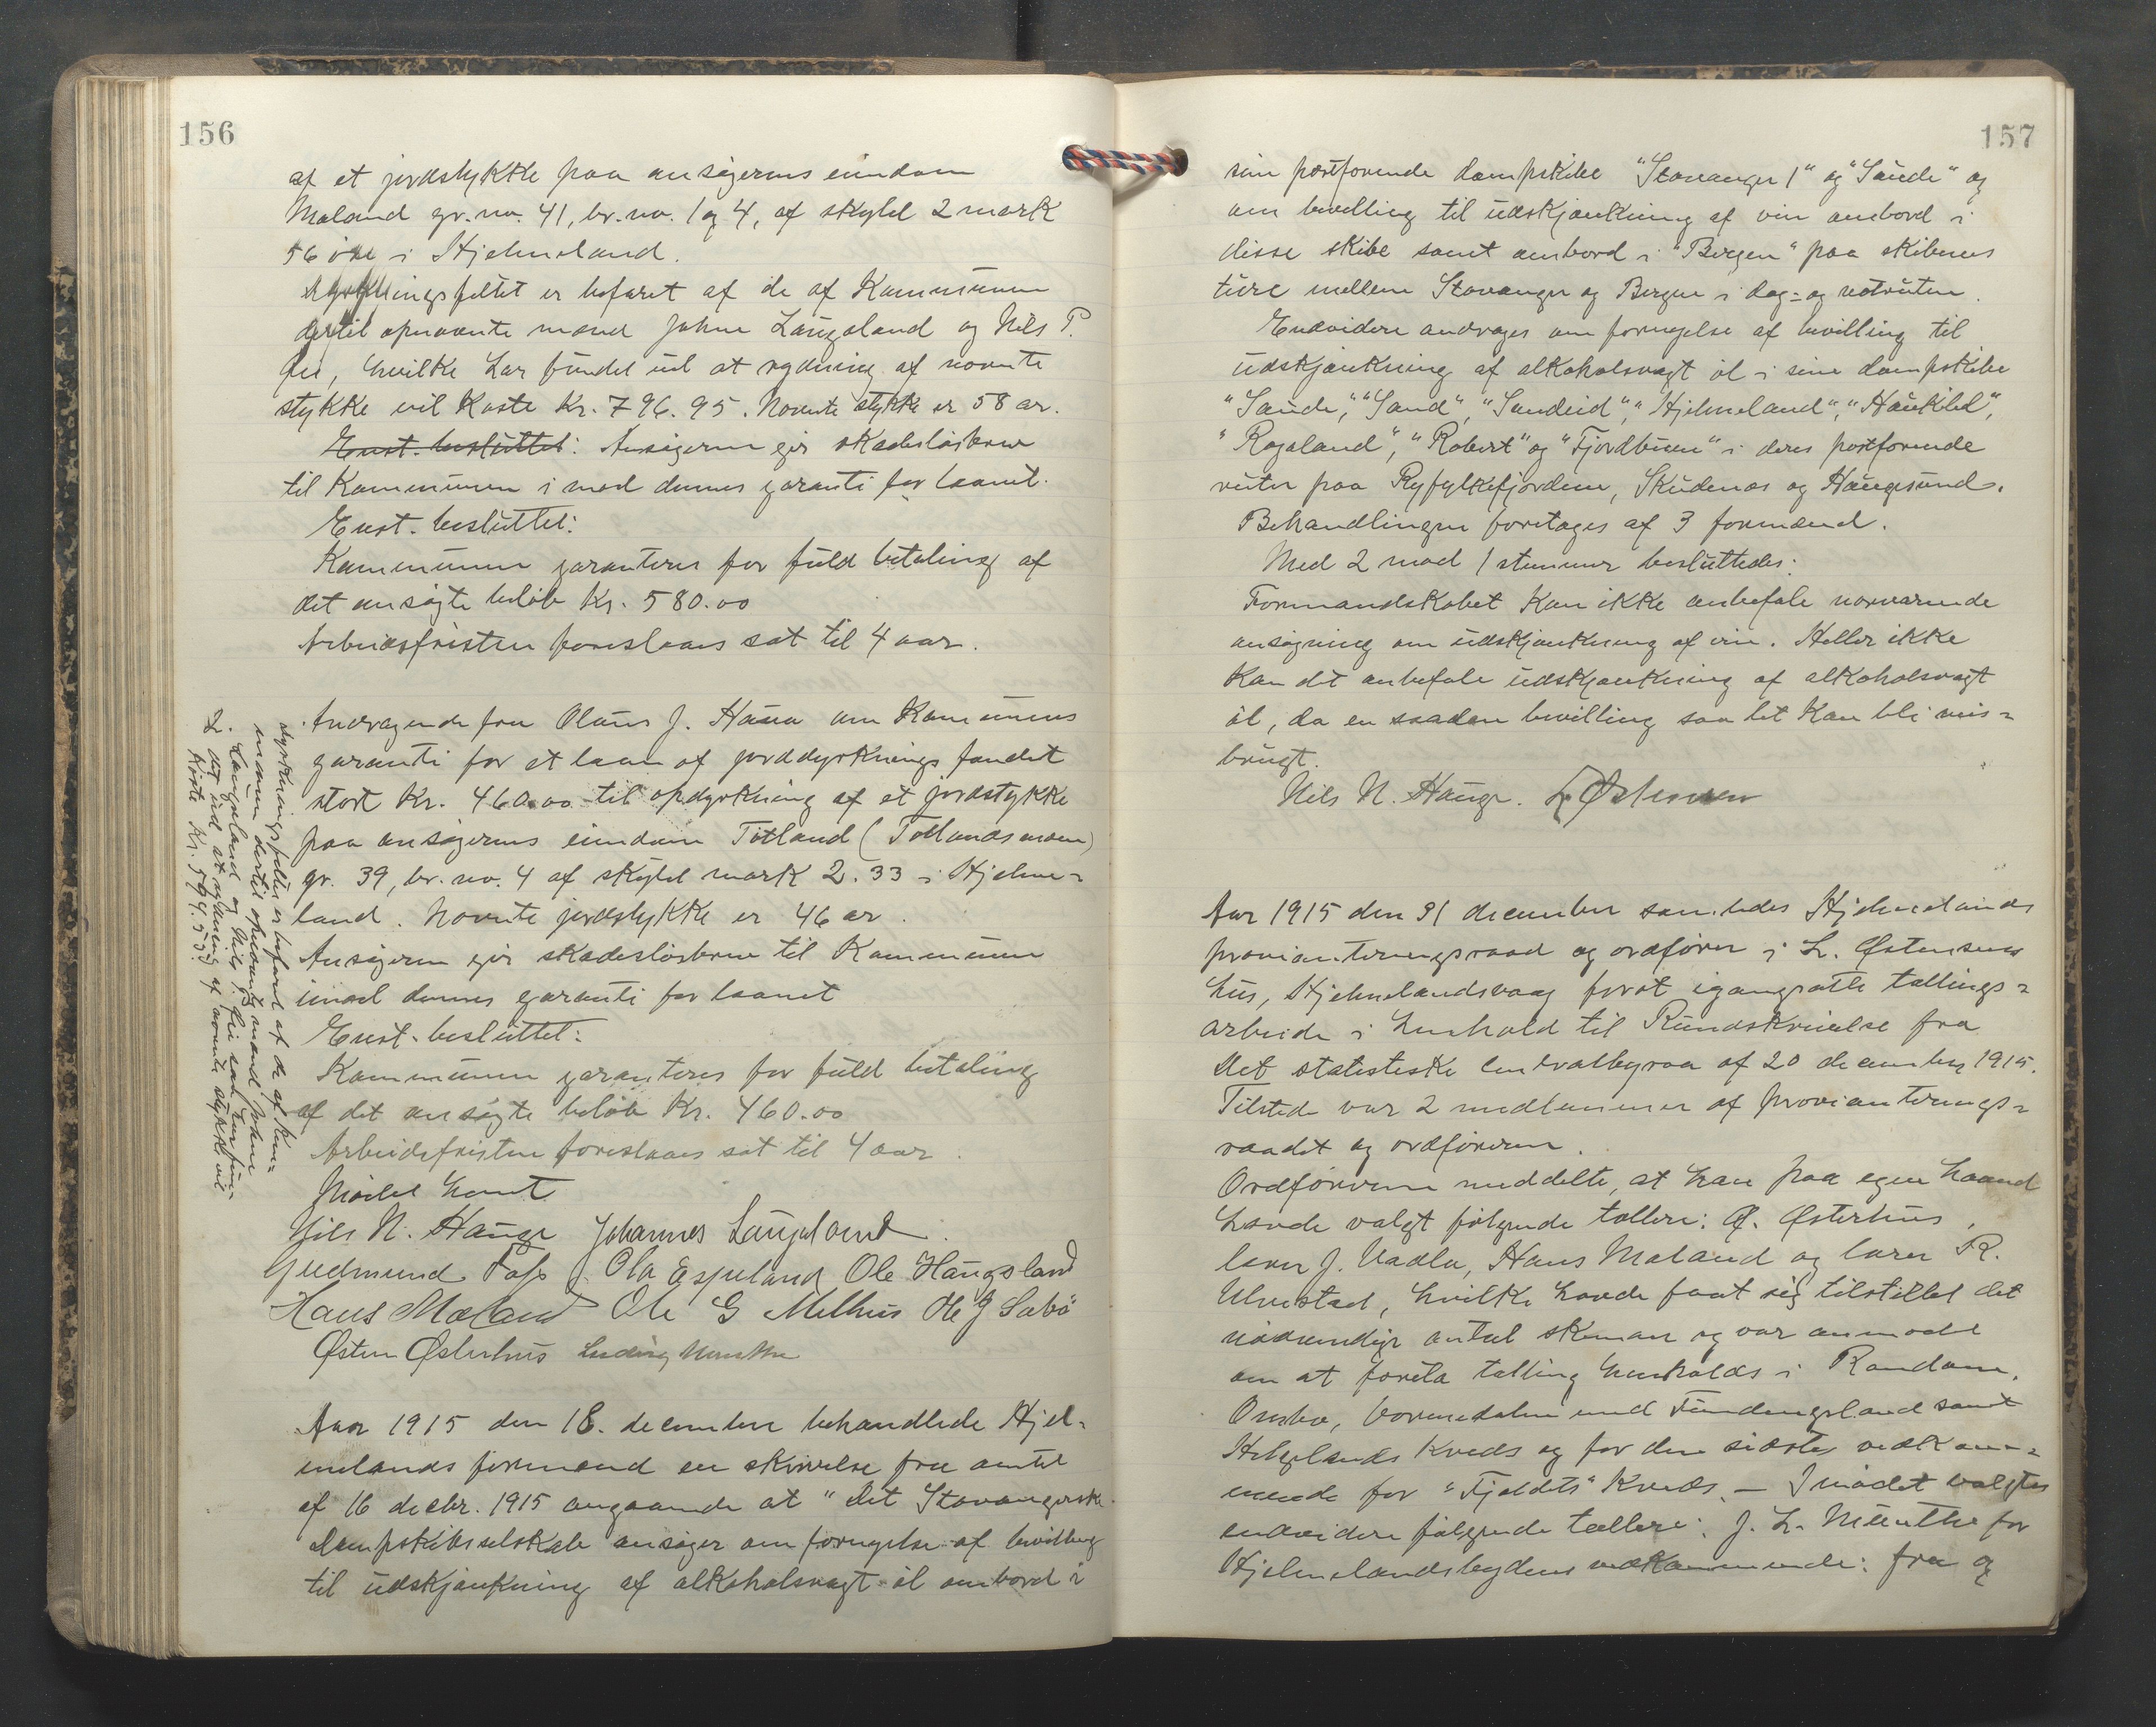 156
af et jordstykke paa ansøgerens eiendom
Mæland gr. no. 41, br. no. 1 og 4, af skyld 2 mark
56 øre i Hjelmeland.
Dyrkningsfeltet er befaret af de af Kommunen
dertil opnævnte mænd John Laugaland og Nils P.
hvilke har fundet ud at rydning af nævnte
stykke vil koste Kr. 796.95. Nævnte stykke er 58 ar.
Enst. besluttet: Ansøgeren gir skadesløsbrev
til Kommunen imod dennes garanti for laanet.
Enst. besluttet:
Kommunen garanteres for fuld betaling af
det ansøgte beløb Kr. 580.00
Arbeidsfristen foreslaaes sat til 4 aar.
Andragende fra Olaus J. Haua om Kommunens
garanti for et laan af jorddyrkningsfondet
stort Kr. 460.00 til opdyrkning af et jordstykke
paa ansøgerens eiendom Tøtland (Tøtlandsmoen)
gr. 39, br. no. 4 af skyld mark 2.33 i Hjelme=
land. Nævnte jordstykke er 46 ar.
Ansøgeren gir skadesløsbrev til Kommunen
imod dennes garanti for laanet
Enst. besluttet:
Kommunen garanteres for fuld betaling
af det ansøgte beløb Kr. 460.00
Arbeidsfristen foreslaaes sat til 4 aar.
Mødet hævet
Nils N. Hauge Johannes Laugaland.
Gudmund Foss Ola Espeland Ole Haugsland
Hans Mæland Ole G Melhus Ole J Sæbø
Østen Østerhus Ludvig Munthe
Dyrkningsfeltet er befaret af de af Kom=
munen dertil opnævnte mænd John
Laugaland og Nils P. som har fun=
det ud at rydning af nævnte stykke vil
koste Kr. 594.55.
Aar 1915 den 18. december behandlede Hjel=
melands formænd en skrivelse fra amtet
af 16 decbr. 1915 angaaende at "Det Stavangerske
Dampskibsselskab ansøger om fornyelse af bevilling
til udskjænkning af alkoholsvagt øl ombord i
157
sine postførende dampskibe "Stavanger I" og "Sauda" og
om bevilling til udskjænkning af vin ombord i
disse skibe samt ombord i "Bergen" paa skibenes
ture mellem Stavanger og Bergen i dag= og natruten.
Endvidere andrages om fornyelse af bevilling til
udskjænkning af alkoholsvagt øl i sine dampskibe
"Sauda", "Sand", "Sandeid", "Hjelmeland", "Haukelid",
"Rogaland", "Robert" og "Fjordbuen" i deres postførende
ruter paa Ryfylkefjordene, Skudenes og Haugesund.
Behandlingen foretages af 3 formænd.
Med 2 mod 1 stemmer besluttedes:
Formandskabet kan ikke anbefale nærværende
ansøgning om udskjænkning af vin. Heller ikke
kan det anbefale udskjænkning af alkoholsvagt
øl, da en saadan bevilling saa let kan bli mis=
brugt.
Nils N. Hauge. L Østensen
Aar 1915 den 31 december samledes Hjelmelands
provianteringsraad og ordfører i L. Østensens
hus, Hjelmelandsvaag for at igangsætte tællings=
arbeide i henhold til Rundskrivelse fra
Det statistiske centralbyraa af 20 december 1915.
Tilstede var 2 medlemmer af provianterings=
raadet og ordføreren.
Ordføreren meddelte, at han paa egen haand
havde valgt følgende tællere: Ø. Østerhus,
lærer J. Vadla, Hans Mæland og lærer R.
Ulvestad, hvilke havde faat sig tilstillet det
nødvendige antal skemaer og var anmodet
om at foreta tælling henholds i Randøen,
Ombo, Vormedalen med Fundingsland samt
Helgelands Kreds og for den sidstes vedkom=
mende for "Fjeldets" Kreds. — I mødet valgtes
endvidere følgende tællere: J. L. Munthe for
Hjelmelandsbygdens vedkommende: fra og